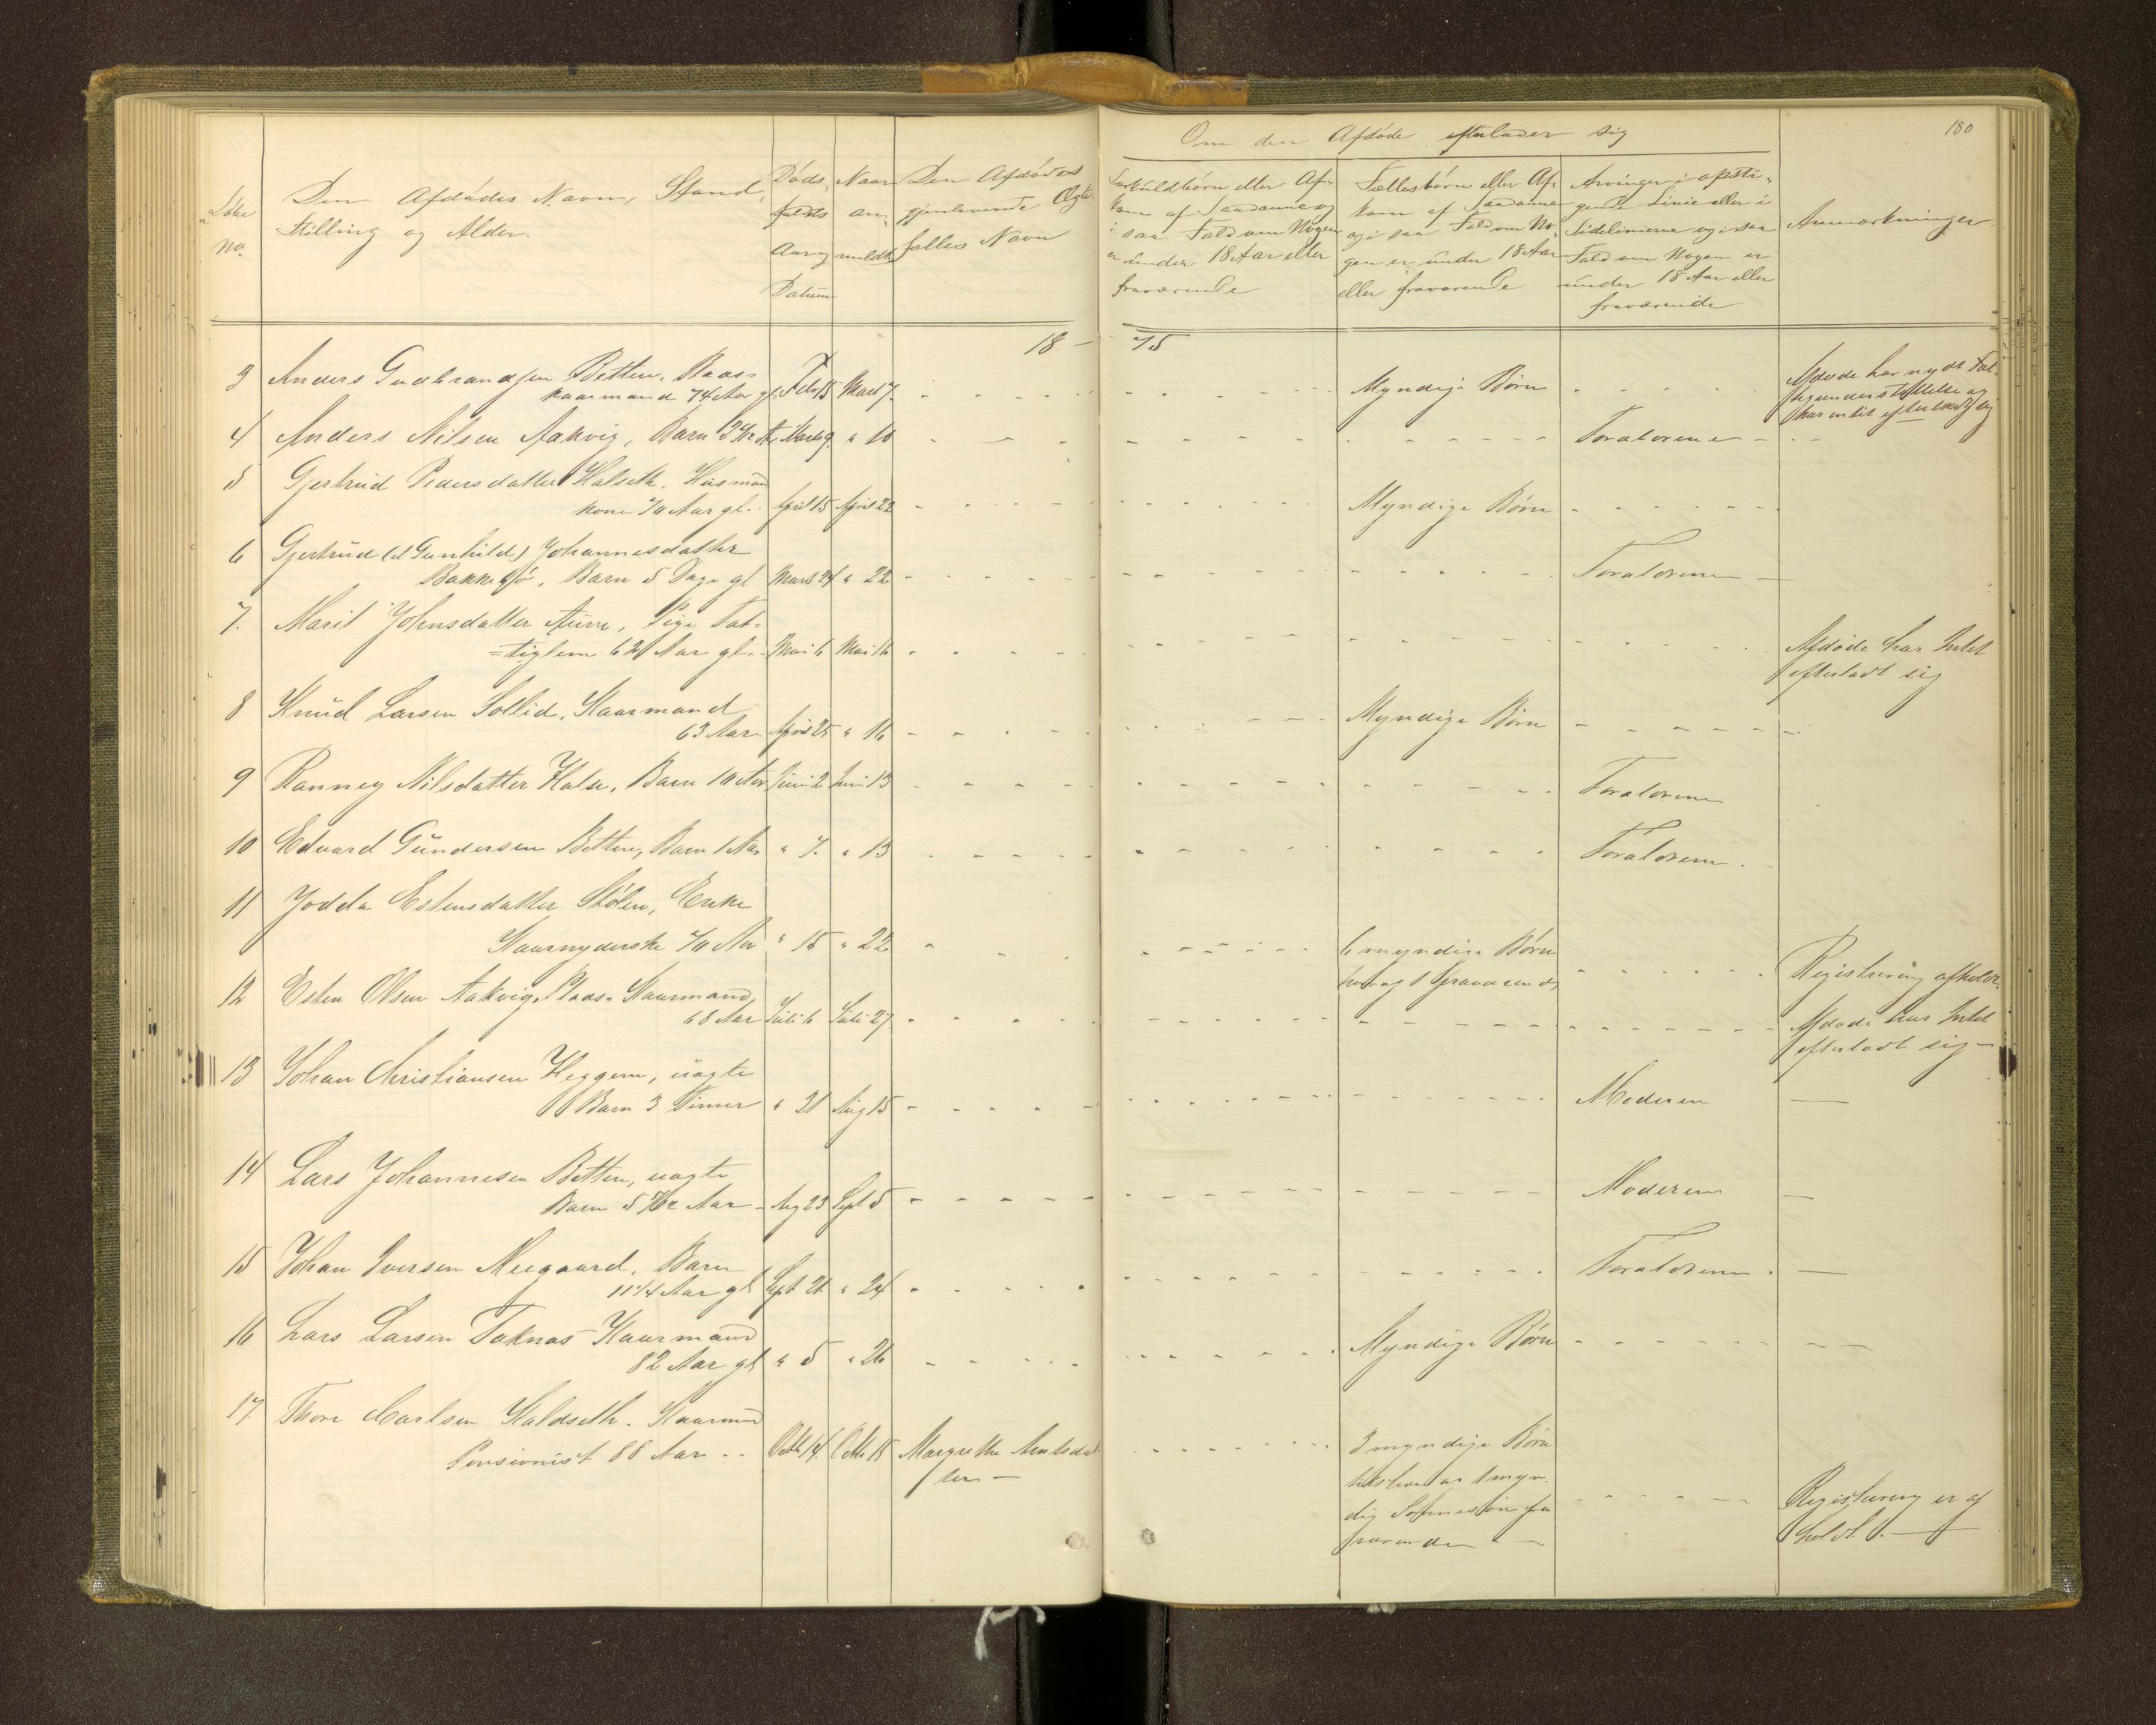 180
Om den Afdøde efterlader sig
Løbe No.
Den Afdødes Navn, Stand,
Stilling og Alder.
Døds-
faldets
Aar og
Datum
Naar
an-
meldt
Den Afdødes
gjenlevende Ægte-
fælles Navn
Særkuldbørn eller Af-
kom af Saadanne og
i saa Fald om Nogen
er under 18 Aar eller
fraværende
Fællesbørn eller Af-
kom af Saadanne
og i saa Fald om No-
gen er under 18 Aar
eller fraværende
Arvinger i opsti-
gende Linie eller i
Sidelinierne og i saa
Fald om Nogen er
under 18 Aar eller
fraværende
Anmærkninger
18 - 75
3 Anders Gudbrandsen Betten, Plads-
kaarmand 74 Aar gl. Feb 15 Mars 7. Myndige Børn Afdøde har nydt Fat-
tigunderstøttelse og
har intet efterladt sig
4 Anders Nilsen Aakvig, Barn Marts 9. " 10 Forældrene
5 Gjertrud Pedersdatter Halseth, Husmand
kone 70 Aar gl. April 15 April 22 Myndige Børn
6 Gjertrud (el Gunhild) Johannesdatter
Barn 5 Dage gl Mars 24 " 22 Forældrene
7. Marit Johnsdatter Aune, Pige Fat-
=tiglem 62 Aar gl. Mai 6 Mai 16 Afdøde har Intet
efterladt sig
8 Knud Larsen Sollid, Kaarmand
63 Aar. April 25 " 16 Myndige Børn
9 Ranney Nilsdatter Halse, Barn 10 Aar Juni 2 Juni 13 Forældrene
10 Edvard Gundersen Betten, Barn 1 Aar " 7. " 13 Forældrene.
11 Jodda Estensdatter Stølen, Enke
Kaarnyderske 70 Aar " 15 " 22 6 myndige Børn
hvoraf 1 fraværende Registrering afholdt.
12 Esten Olsen Aakvig, Plads-Kaarmand,
68 Aar Juli 6 Juli 27 Afdøde har Intet
efterladt sig -
13 Johan Christiansen Heggem, uægte
Barn 3 Timer " 21 Aug 15 Moderen
14 Lars Johannesen Betten, uægte
Barn 5 7/12 Aar - Aug 23 Sept 5 Moderen
15 Johan Iversen Nergaard, Barn
11 1/4 Aar gl Sept 21. " 24 Forældrene.
16 Lars Larsen Taknæs Kaarmand
82 Aar gl " 5 " 26 Myndige Børn
17. Thore Carlsen Haldseth, Kaarmand
Pensionist 88 Aar Octb 14. Octb 15 Margrethe Arntsdat
ter - 3 myndige Børn
1 myn-
dig Sønnesøn fra
værende - Registrering er af
holdt.